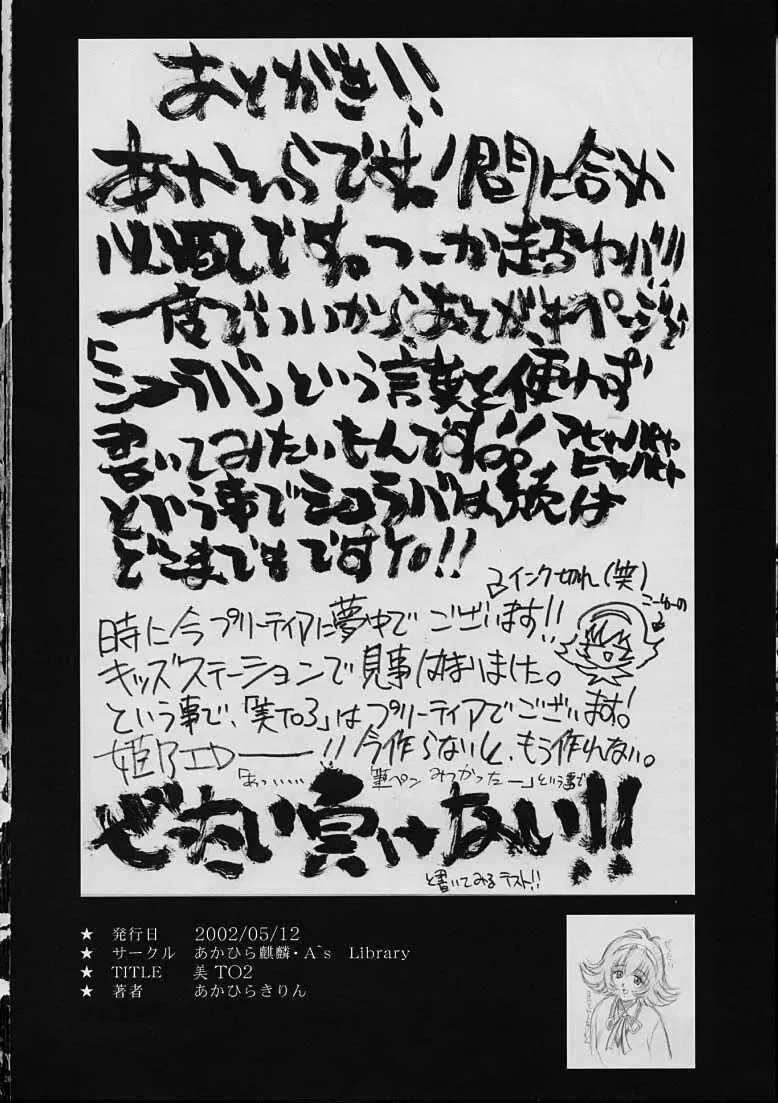 あとがき!!
あかひらです。間に合うか
心配です。つーか超ヤバ!!
一度でいいからあとがきページで
「シュラバ」という言葉を使わず
書いてみたいもんです。
という事でシュラバは続くよ
どこまでもですYO!!
インク切れ(笑)
時に今プリーティアに夢中でございます!!
キッズステーションで見事はまりました。
という事で、「美TO3」はプリーティアでございます!
姫 ――!!今作らないと、もう作れない。
「あっ…… 筆ペン みつかったー」という事で
ぜったい負けない!!
と書いてみるテスト!!
★ 発行日 2002/05/12
★ サークル あかひら麒麟・A`s Library
★ TITLE 美 TO2
★ 著者 あかひらきりん
26